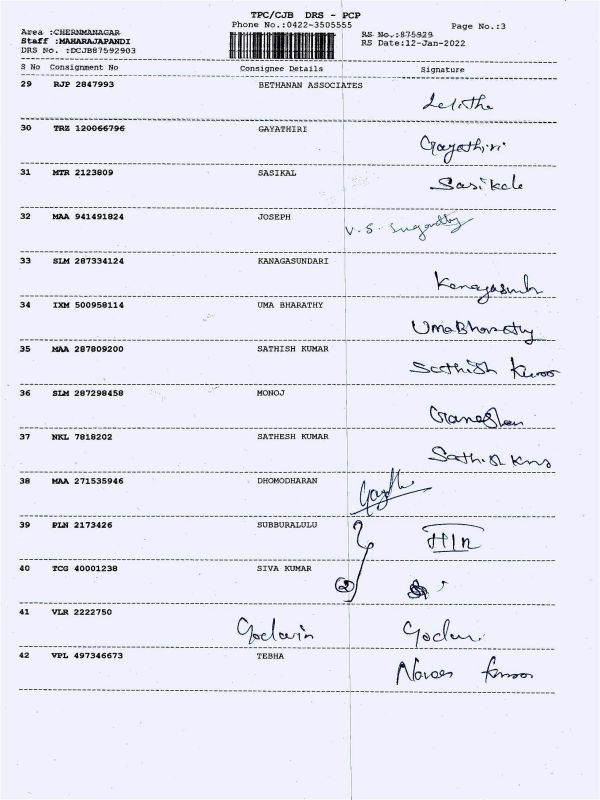 TPC/CJB DRS - PCP
Phone No.:0422-3505555
Page No.:3
Area :CHERNMANAGAR
Staff :MAHARAJAPANDI
DRS No. :DCJB87592903
RS No.:875929
RS Date:12-Jan-2022
S No Consignment No Consignee Details Signature
29 RJP 2847993 BETHANAN ASSOCIATES
Lalitha
30 TRZ 120066796 GAYATHIRI
Gayathiri
31 MTR 2123809 SASIKAL
Sasikale
32 MAA 941491824 JOSEPH
V. S.
33 SLM 287334124 KANAGASUNDARI
34 IXM 500958114 UMA BHARATHY
UmaBharathy
35 MAA 287809200 SATHISH KUMAR
Sathish
36 SLM 287298458 MONOJ
37 NKL 7818202 SATHESH KUMAR
Sathish
38 MAA 271535946 DHOMODHARAN
39 PLN 2173426 SUBBURALULU
40 TCG 40001238 SIVA KUMAR
2
41 VLR 2222750
Godwin
42 VPL 497346673 TEBHA